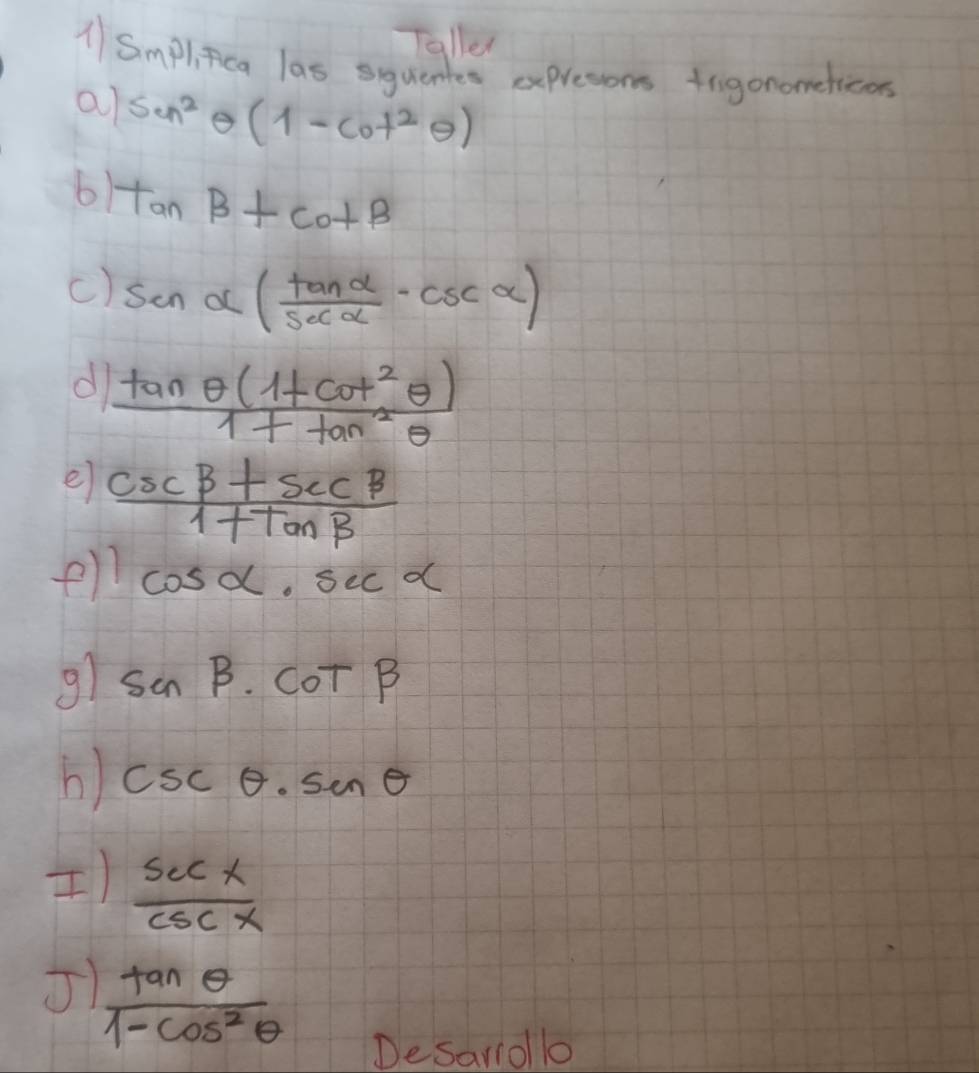 Taller
1) Simplifica las siguientes expresiones trigonometricas
a) sen² θ (1 - cot² θ)
b) tan β + cot β
c) sen α (tan α / sec α - csc α)
d) tan θ (1 + cot² θ) / 1 + tan² θ
e) csc β + sec β / 1 + Tan β
f) cos α . sec α
g) sen β . COT β
h) csc θ . sen θ
I) sec x / csc x
J) tan θ / 1 - cos² θ
Desarrollo